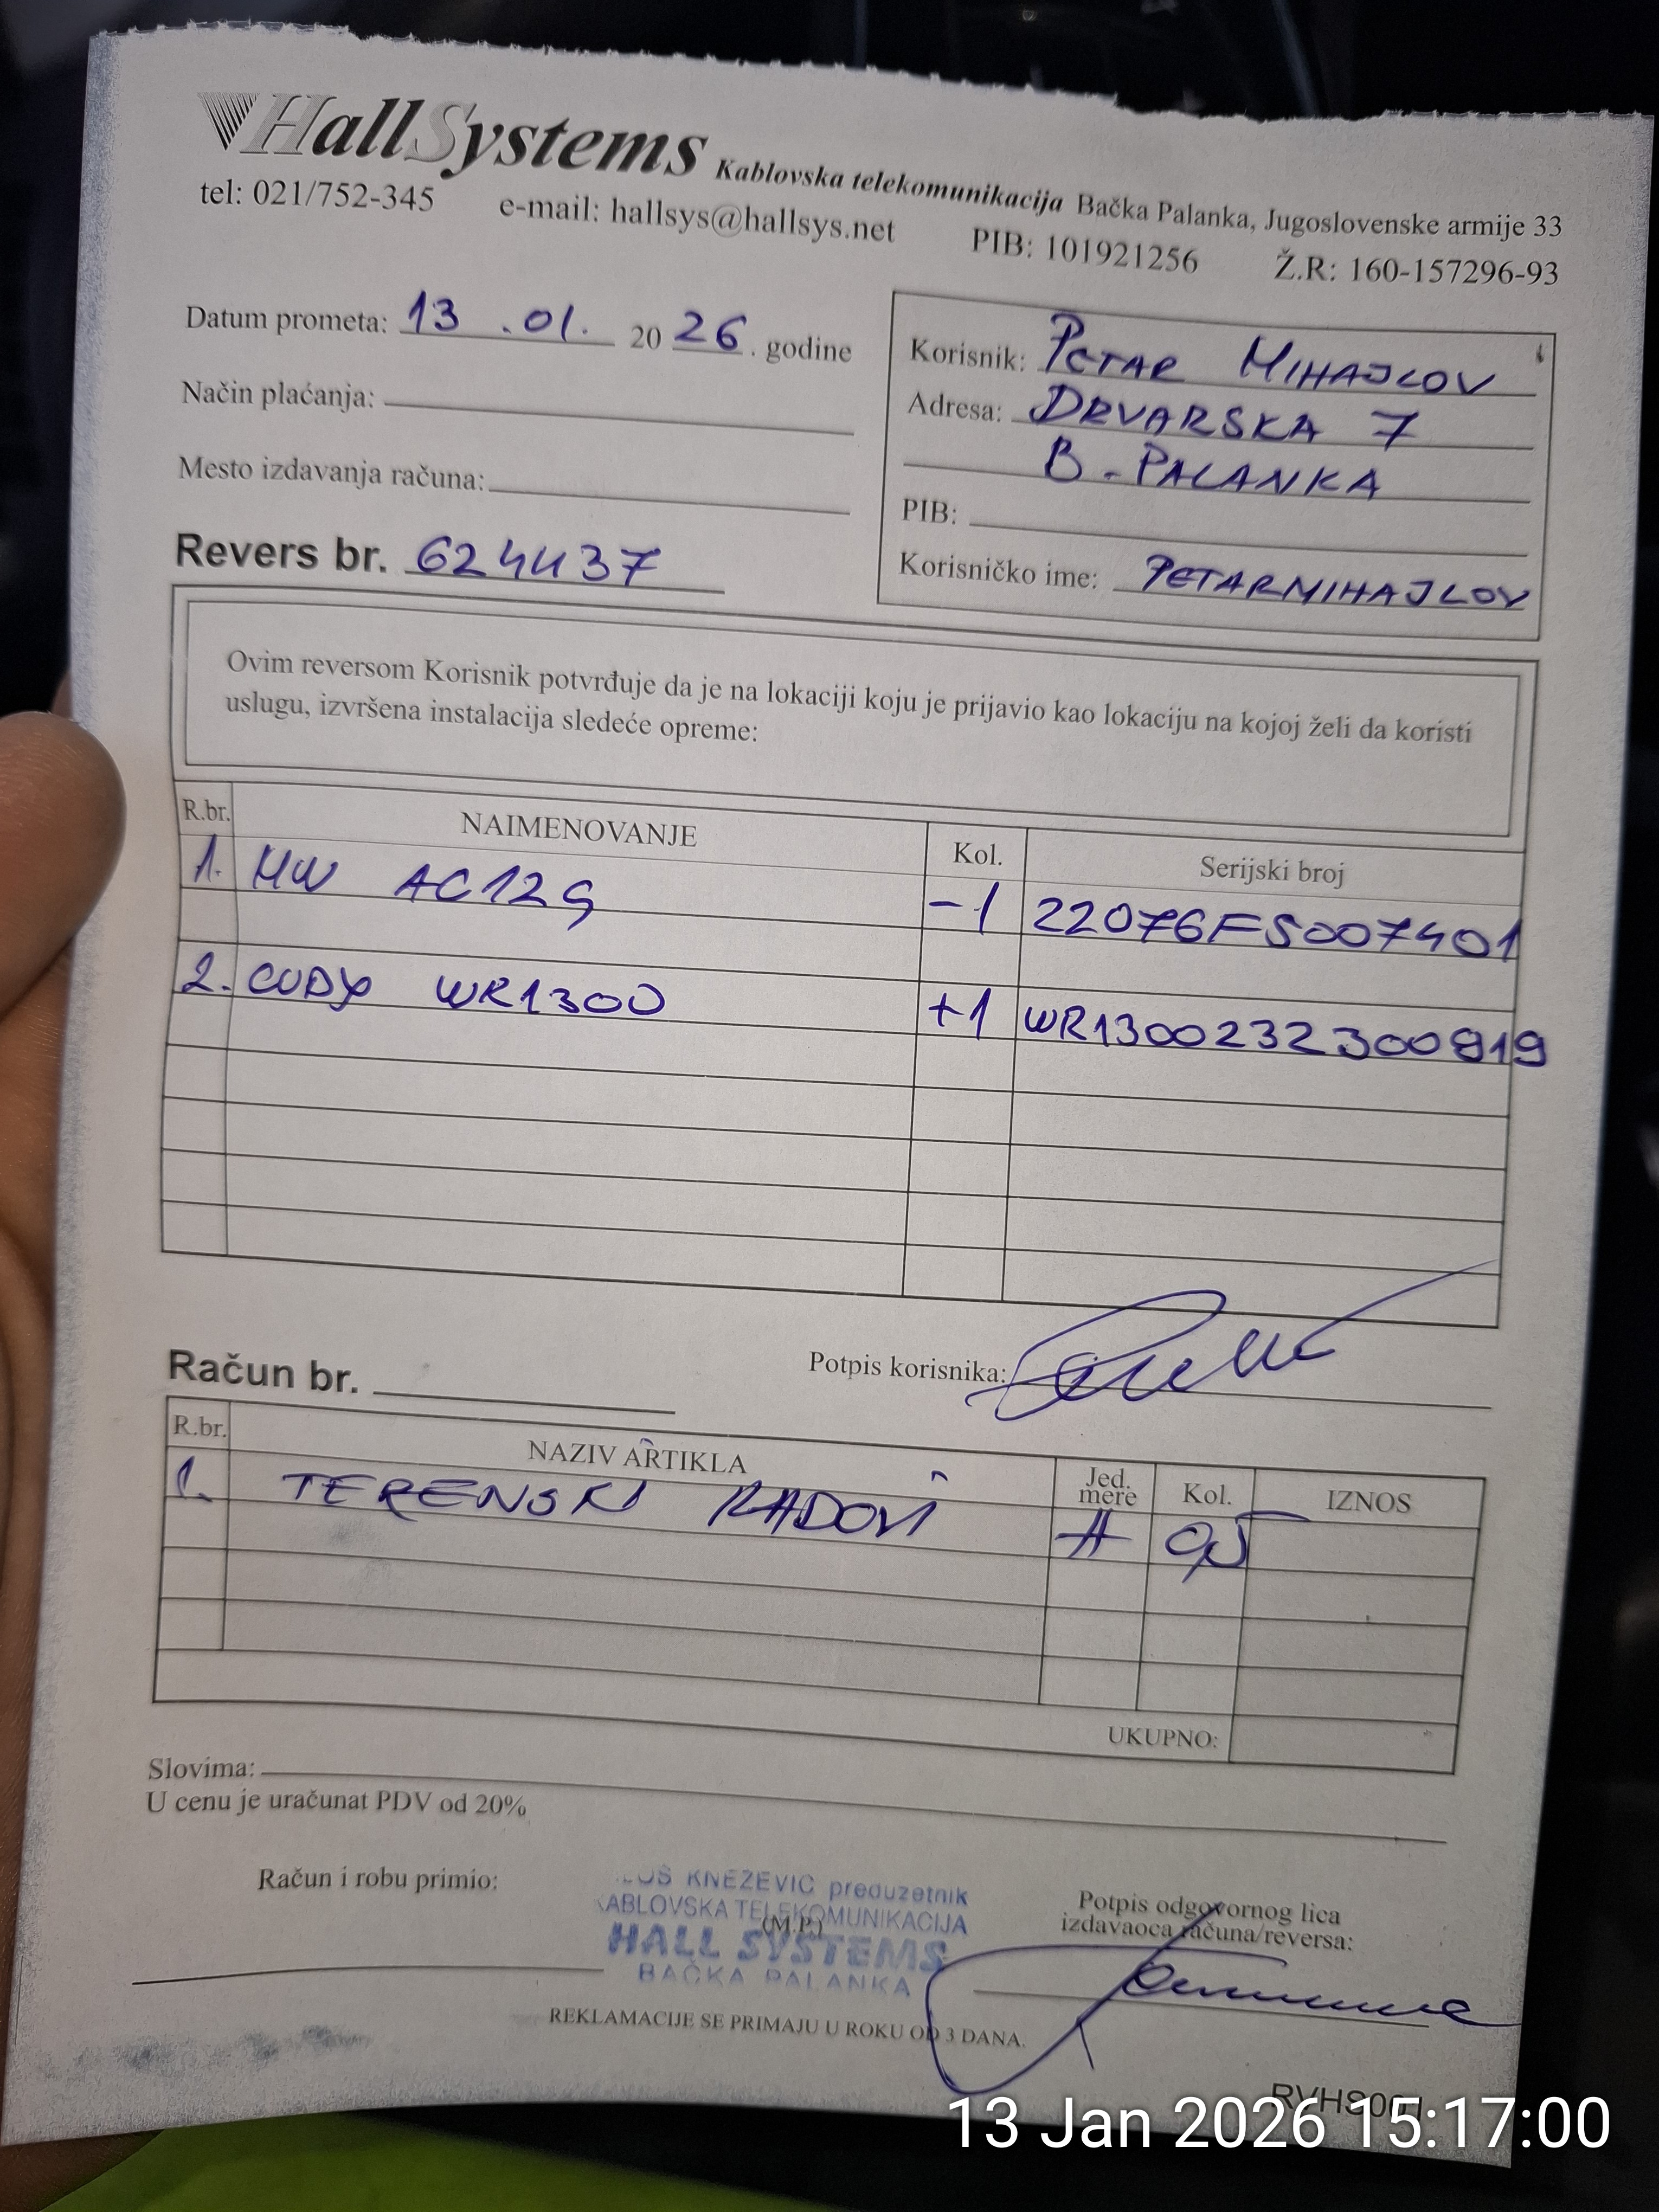 HallSystems Kablovska telekomunikacija Bačka Palanka, Jugoslovenske armije 33
tel: 021/752-345 e-mail: hallsys@hallsys.net PIB: 101921256 Ž.R: 160-157296-93
Datum prometa: 13 .01. 20 26 . godine
Način plaćanja:
Mesto izdavanja računa:
Revers br. 624437
Korisnik: PETAR MIHAJLOV
Adresa: DRVARSKA 7
B-PALANKA
PIB:
Korisničko ime: PETARMIHAJLOV
Ovim reversom Korisnik potvrđuje da je na lokaciji koju je prijavio kao lokaciju na kojoj želi da koristi
uslugu, izvršena instalacija sledeće opreme:
R.br. NAIMENOVANJE Kol. Serijski broj
1. MW AC12G -1 22076FS007401
2. CUDY WR1300 +1 WR1300232300919
Potpis korisnika:
Račun br.
R.br. NAZIV ARTIKLA Jed. mere Kol. IZNOS
1. TERENSKI RADOVI H 0,5
UKUPNO:
Slovima:
U cenu je uračunat PDV od 20%
Račun i robu primio:
KNEZEVIC preduzetnik
KABLOVSKA TELEKOMUNIKACIJA
(M.P.)
HALL SYSTEMS
BAČKA PALANKA
Potpis odgovornog lica
izdavaoca računa/reversa:
REKLAMACIJE SE PRIMAJU U ROKU OD 3 DANA.
13 Jan 2026 15:17:00